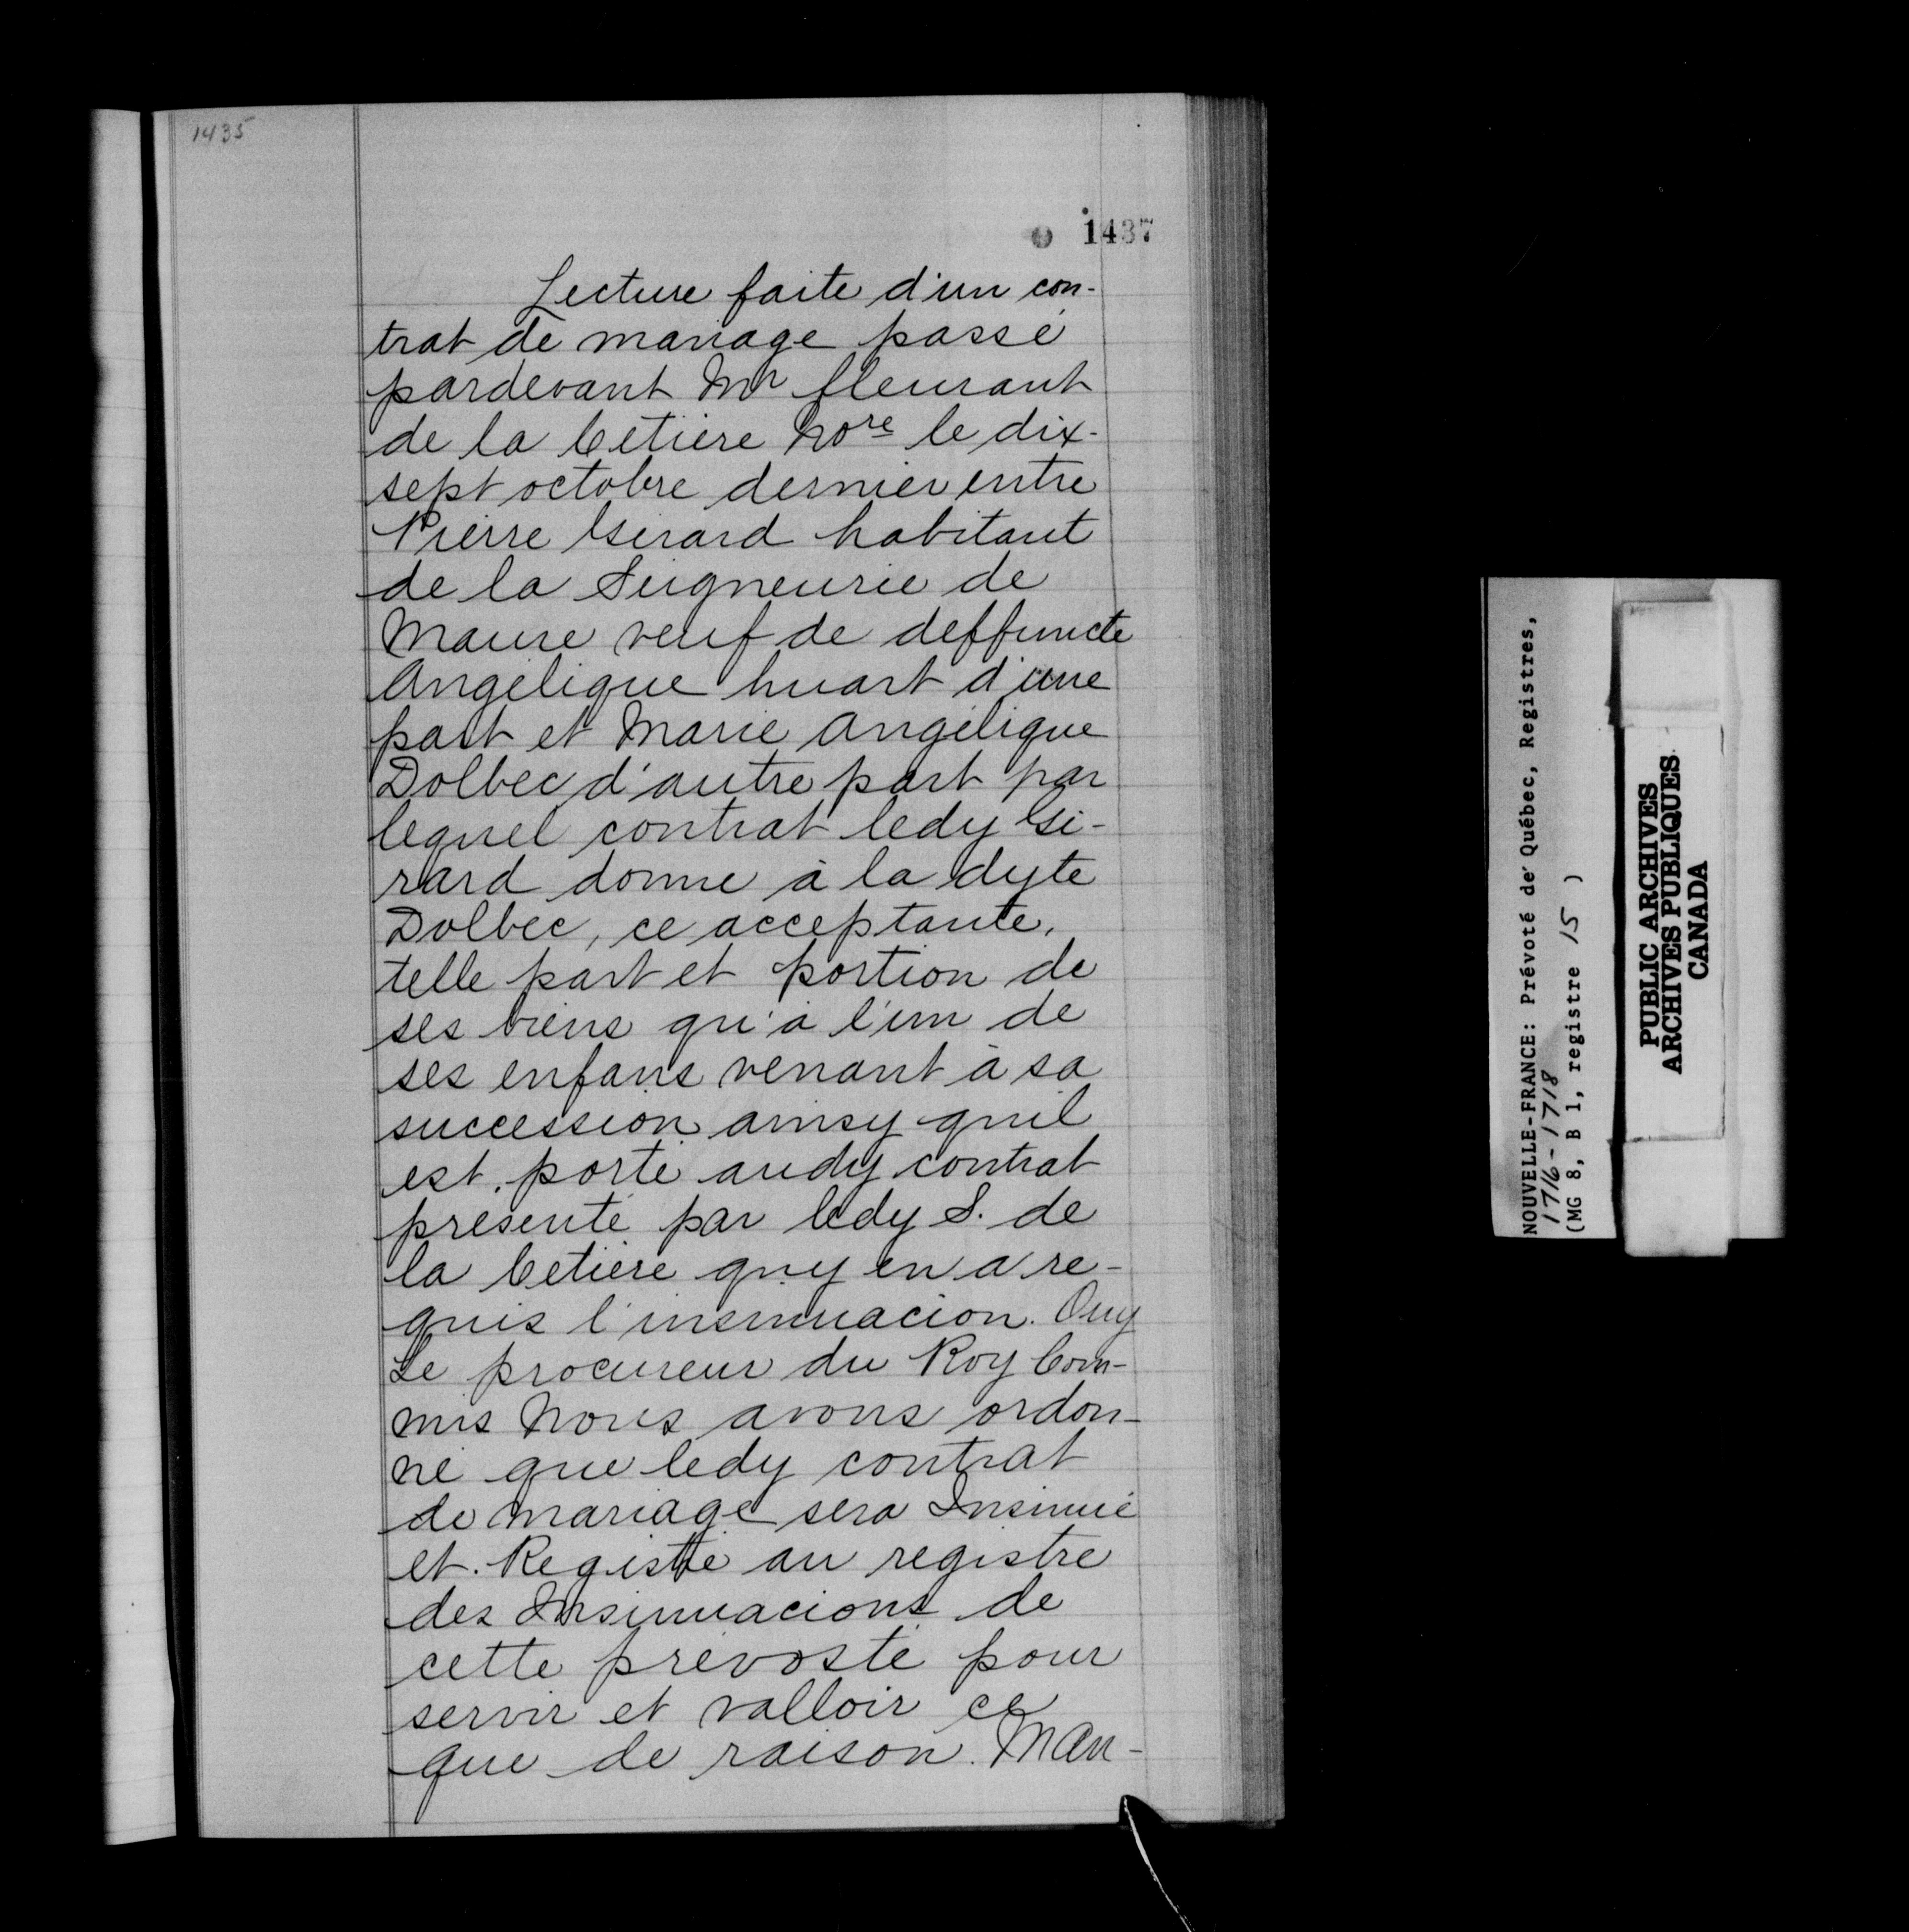 1435
1437
Lecture faite d'un con-
trat de mariage passé
pardevant Mr fleurant
de la Cetière Nore le dix-
sept octobre dernier entre
Pierre Girard habitant
de la Seigneurie de
Maure veuf de deffuncte
Angélique huart d'une
part et Marie Angélique
Dolbec d'autre part par
lequel contrat ledy Gi-
rard donne à la dyte
Dolbec, ce acceptante,
telle part et portion de
ses biens qu'à l'un de
ses enfans venant à sa
succession ainsy quil
est porté audy contrat
presenté par ledy S. de
la Cetière quy en a re-
quis l'insinuacion. Ouy
Le procureur du Roy Com-
mis Nous avons ordon-
né que ledy contrat
de mariage sera Insinué
et Registré au registre
des Insinuacions de
cette prévosté pour
servir et valloir ce
que de raison. Man-
NOUVELLE-FRANCE: Prévoté de Québec, Registres,
1716-1718
(MG 8, B 1, registre 15 )
PUBLIC ARCHIVES
ARCHIVES PUBLIQUES
CANADA